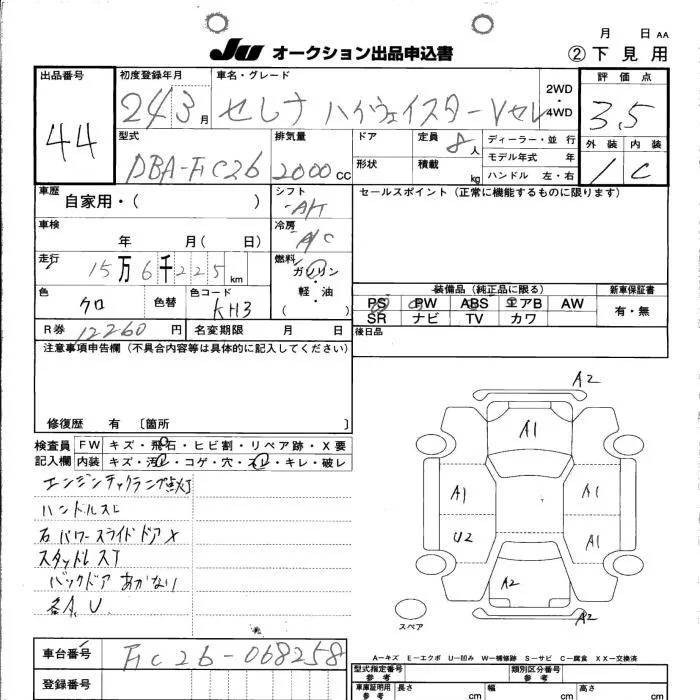 月 日 AA
JU オークション出品申込書 ②下見用
出品番号 初度登録年月 車名・グレード 2WD・4WD 評価点
44 24/3月 セレナ ハイウェイスターVセレ 3.5
型式 排気量 ドア 定員 ディーラー・並行 外装 内装
DBA-FC26 2000cc 8人 モデル年式 年 1 C
形状 積載 kg ハンドル 左・右
車歴 自家用・( ) シフト A/T セールスポイント(正常に機能するものに限ります)
車検 年 月( 日) 冷房 A/C
走行 15万6千225km 燃料 ガソリン・軽・油 ( )
色 クロ 色替 色コード KH3
装備品(純正品に限る) 新車保証書
PS PW ABS エアB AW 有・無
SR ナビ TV カワ
R券 12260円 名変期限 月 日 後日品
注意事項申告欄(不具合内容等は具体的に記入してください)
修復歴 有 〔箇所 〕
検査員記入欄 FW キズ・飛石・ヒビ割・リペア跡・X要
内装 キズ・汚レ・コゲ・穴・スレ・キレ・破レ
エンジンチェックランプ点灯
ハンドルスレ
右パワースライドドアX
スタッドレスT
バックドア あかない
各A、U
A2
A1
A1 A1
U2 A1
A2
A2
スペア
A-キズ E-エクボ U-凹み W-補修跡 S-サビ C-腐食 XX-交換済
車台番号 FC26-068258
登録番号
型式指定番号 参考 類別区分番号 参考
車庫証明用 参考 長さ cm 幅 cm 高さ cm